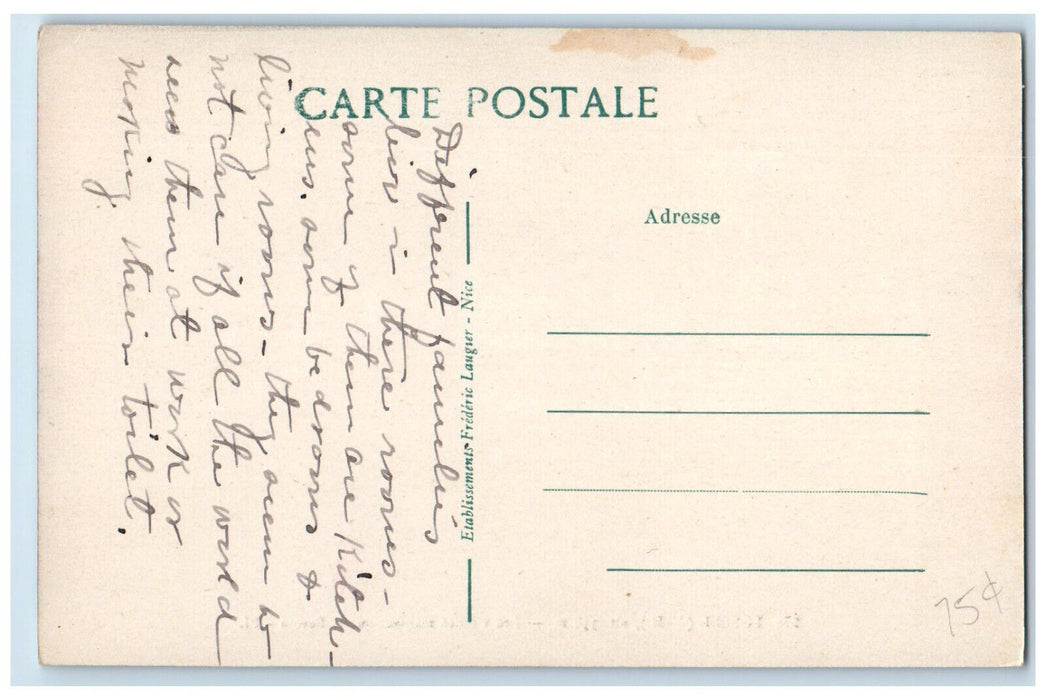 CARTE POSTALE
Different families
live in these rooms-
some of them are Kitch-
ens. some bedrooms &
living rooms - they seem to
not care if all the world
sees them at work or
making their toilet.
Etablissements Frédéric Laugier - Nice
Adresse
75¢